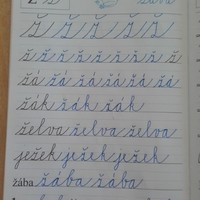 žába
Ž Ž Ž Ž Ž Ž
ž ž ž ž ž ž ž ž ž ž ž
žá žá žá žá žá žá
žák žák žák
želva želva želva
ježek ježek ježek
žába žába žába